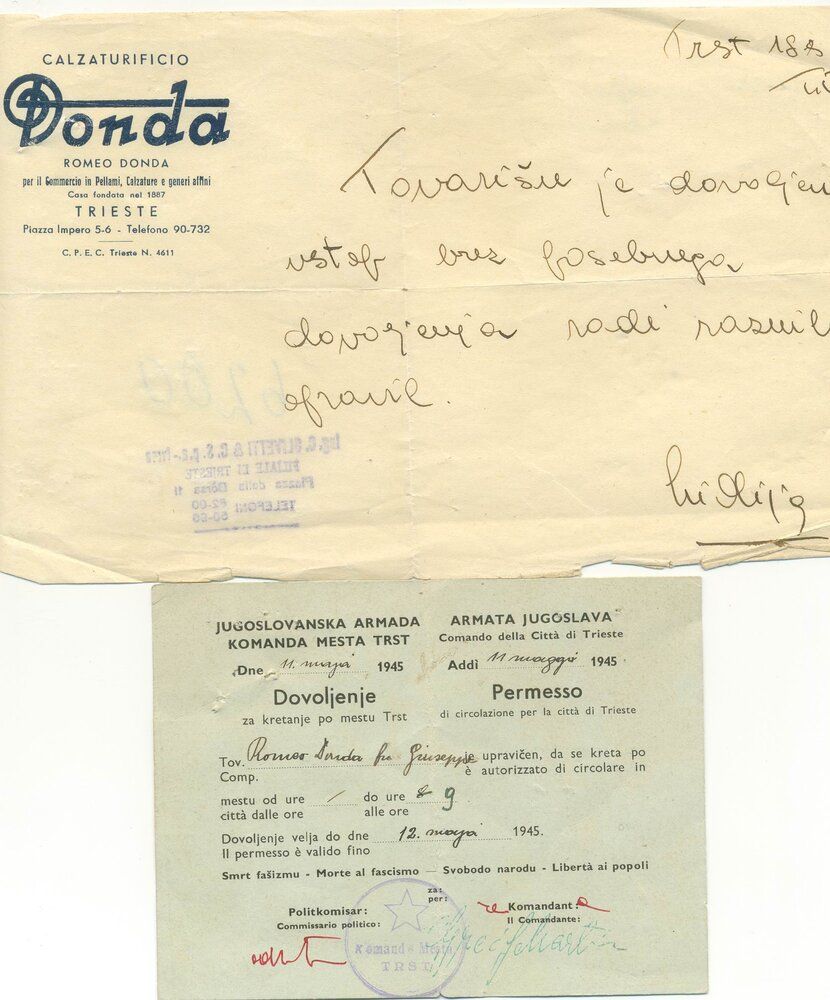 CALZATURIFICIO
Donda
ROMEO DONDA
per il Commercio in Pellami, Calzature e generi affini
Casa fondata nel 1887
TRIESTE
Piazza Impero 5-6 - Telefono 90-732
C. P. E. C. Trieste N. 4611
Trst 18
Tovarišu je dovoljen
vstop brez posebnega
dovoljenja radi raznih
opravil.
Ing. C. OLIVETTI & C. S. p. a. - Ivrea
FILIALE DI TRIESTE
Piazza della Borsa 11
TELEFONI
JUGOSLOVANSKA ARMADA
KOMANDA MESTA TRST
Dne 11. maja 1945
Dovoljenje
za kretanje po mestu Trst
ARMATA JUGOSLAVA
Comando della Città di Trieste
Addì 11 maggio 1945
Permesso
di circolazione per la città di Trieste
Tov. Romeo Donda fu Giuseppe je upravičen, da se kreta po
Comp. è autorizzato di circolare in
mestu od ure / do ure 8 9
città dalle ore alle ore
Dovoljenje velja do dne 12. maja 1945.
Il permesso è valido fino
Smrt fašizmu - Morte al fascismo — Svobodo narodu - Libertà ai popoli
za:
per:
Politkomisar:
Commissario politico:
Komandant:
Il Comandante:
Komanda Mesta
TRST